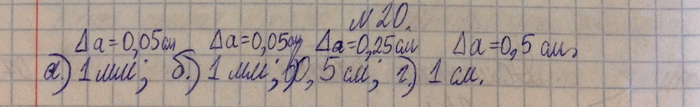 №20.
Δa=0,05см Δa=0,05см Δa=0,25см Δa=0,5см,
а.) 1 мм; б.) 1 мм; в) 0,5 см; г.) 1 см.